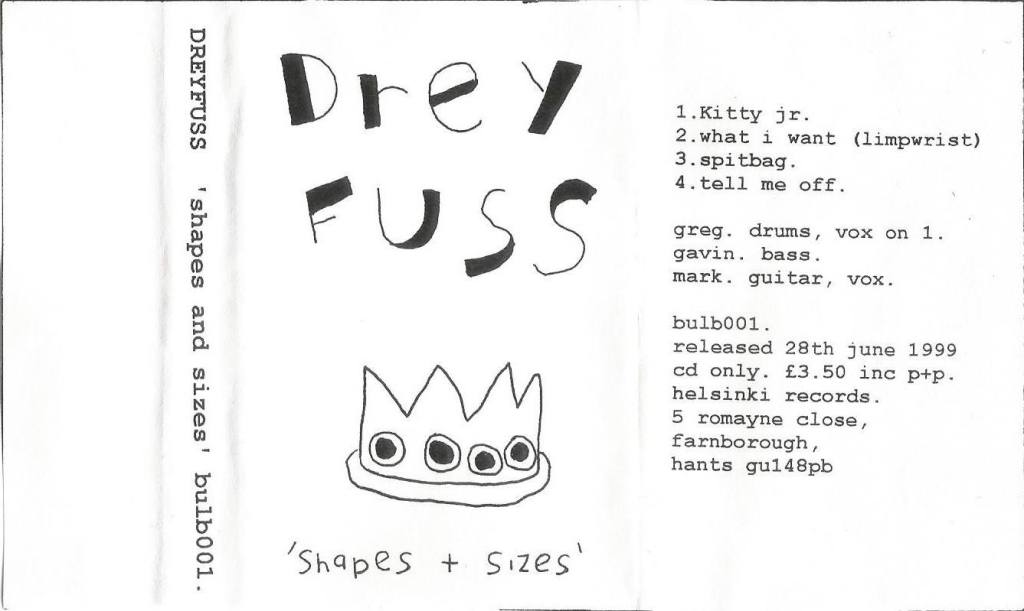 DREYFUSS 'shapes and sizes' bulb001.
Drey
FUSS
'Shapes + Sizes'
1.Kitty jr.
2.what i want (limpwrist)
3.spitbag.
4.tell me off.
greg. drums, vox on 1.
gavin. bass.
mark. guitar, vox.
bulb001.
released 28th june 1999
cd only. £3.50 inc p+p.
helsinki records.
5 romayne close,
farnborough,
hants gu148pb